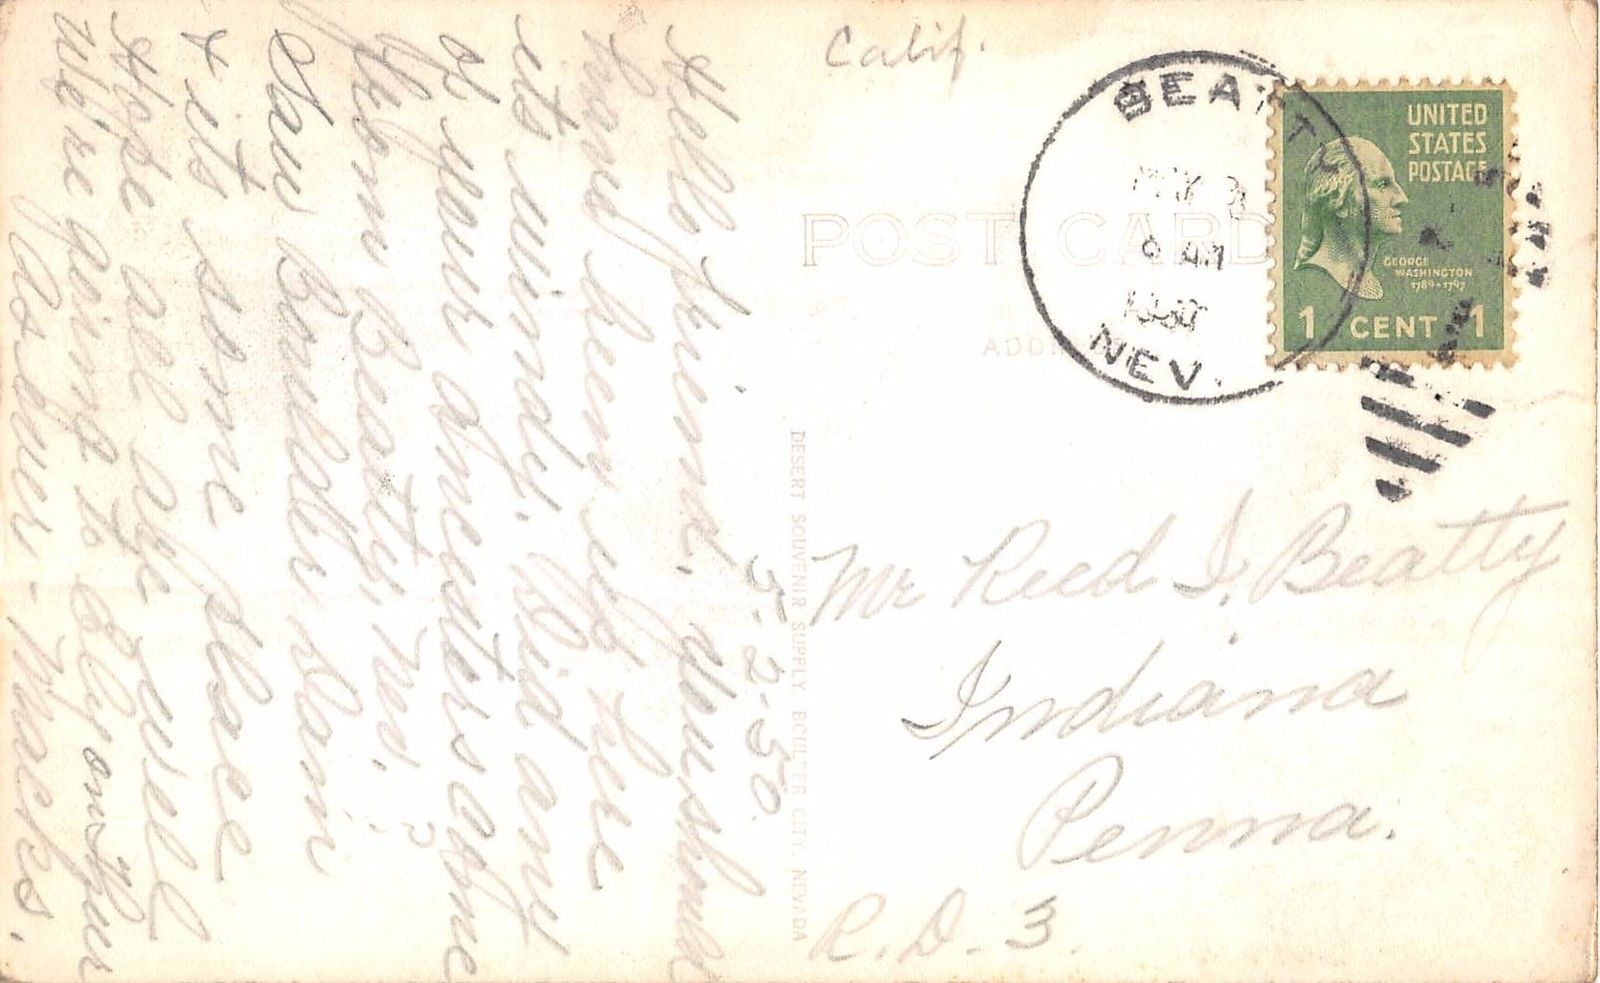 Calif.
BEATTY
9 AM
NEV.
UNITED
STATES
POSTAGE
GEORGE
WASHINGTON
1789-1797
1 CENT 1
POST CARD
DESERT SOUVENIR SUPPLY BOULDER CITY, NEVADA
5-2-50.
Hello friend.
have been up here
its windy. Did any
of your ancestors come
from Beatty, Nev. ?
Saw Boulder Dam
& its some place
Hope all are well
We're going to Ely on thur
as ever - Marks.
Mr Reed I. Beatty
Indiana
Penna.
R.D. 3